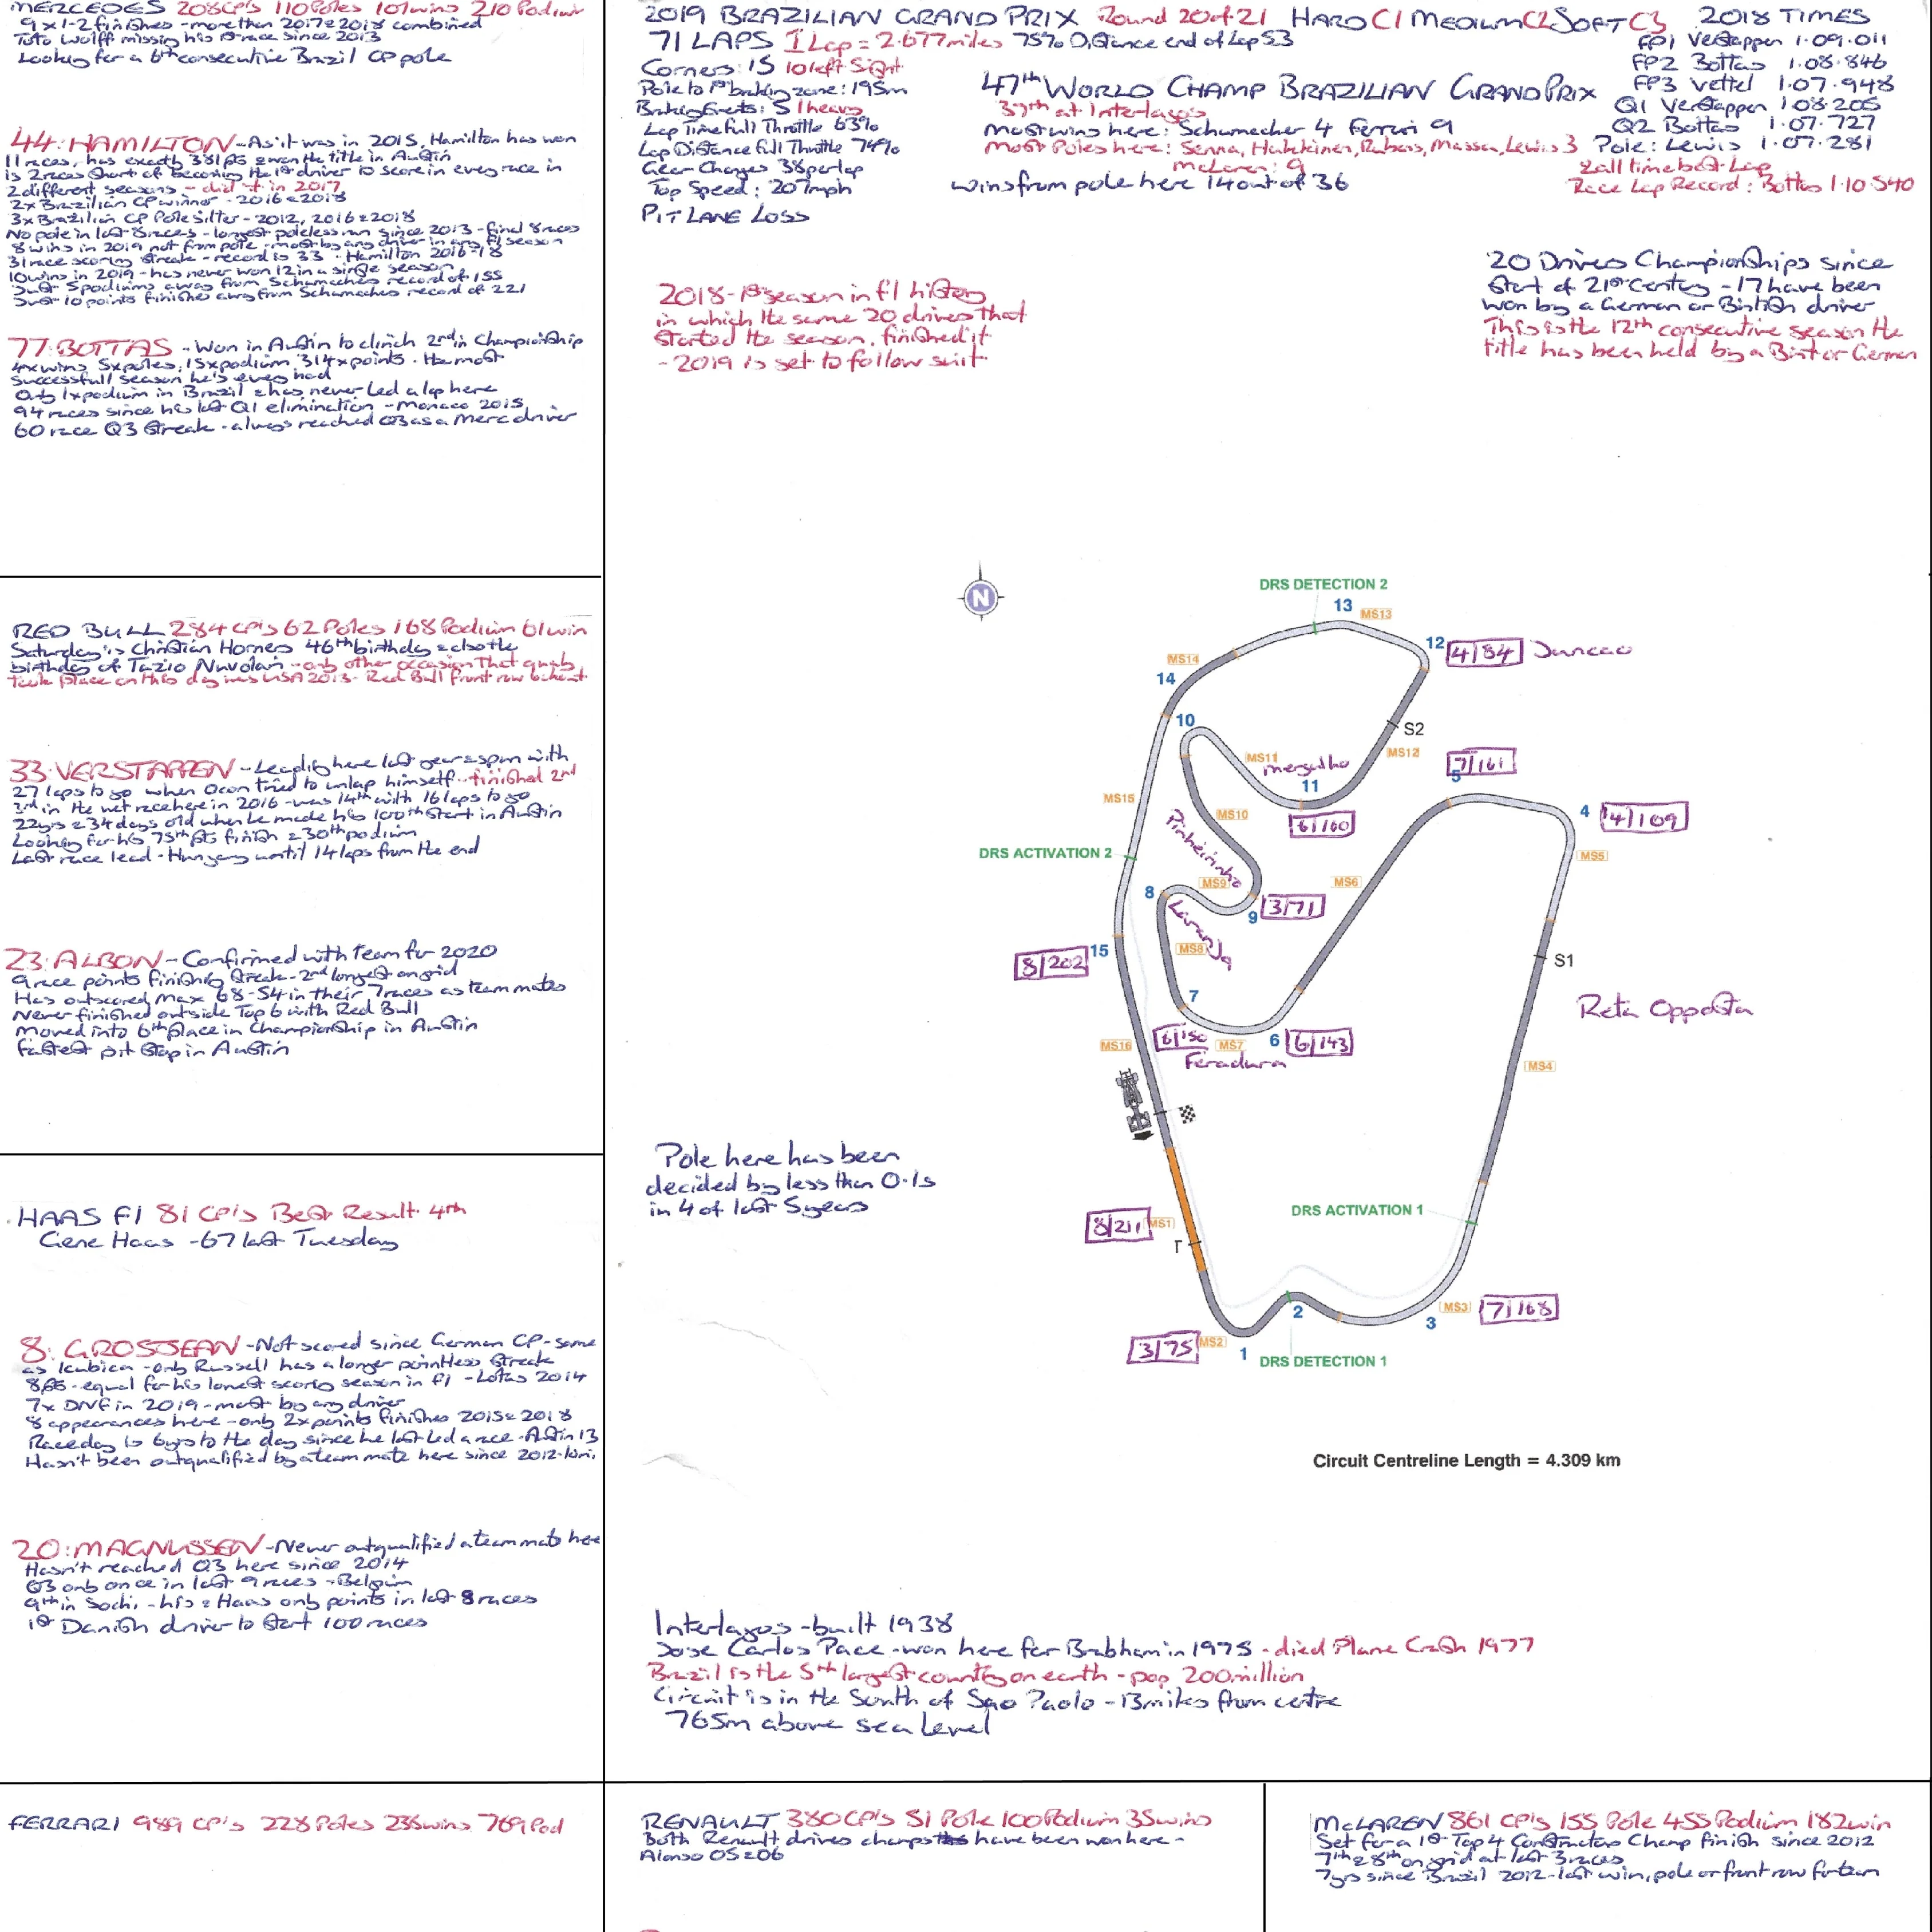 MERCEDES 208 GP's 110 Poles 101 wins 210 Podium
9 x 1-2 finishes - more than 2017 & 2018 combined
Toto Wolff missing his 1st race since 2013
Looking for a 6th consecutive Brazil GP pole
44: HAMILTON - As it was in 2015, Hamilton has won
11 races, has exactly 381pts & won the title in Austin
is 2 races short of becoming the 1st driver to score in every race in
2 different seasons - did it in 2017
2x Brazilian GP winner - 2016 & 2018
3x Brazilian GP Pole Sitter - 2012, 2016 & 2018
No pole in last 8 races - longest poleless run since 2013 - final 8 races
8 wins in 2019 not from pole - most by any driver in any F1 season
31 race scoring streak - record is 33 - Hamilton 2016-18
10 wins in 2019 - has never won 12 in a single season
Just 5 podiums away from Schumachers record of 155
Just 10 points finishes away from Schumachers record of 221
77: BOTTAS - Won in Austin to clinch 2nd in Championship
4x wins, 5x poles, 15x podium, 314x points. The most
successfull season he's ever had
Only 1x podium in Brazil & has never led a lap here
94 races since his last Q1 elimination - Monaco 2015
60 race Q3 streak - always reached Q3 as a Merc driver
2019 BRAZILIAN GRAND PRIX Round 20 of 21 HARD C1 MEDIUM C2 SOFT C3
71 LAPS 1 Lap = 2.677 miles 75% Distance end of Lap 53
Corners: 15 10 left 5 right
Pole to 1st braking zone: 195m
Braking Events: 5 1 heavy
Lap Time Full Throttle 63%
Lap Distance Full Throttle 74%
Gear Changes 38 per lap
Top Speed: 207mph
PIT LANE LOSS
47th WORLD CHAMP BRAZILIAN GRAND PRIX
37th at Interlagos
Most wins here: Schumacher 4 Ferrari 9
Most Poles here: Senna, Hakkinen, Rubens, Massa, Lewis 3
McLaren: 9
wins from pole here 14 out of 36
2018 TIMES
FP1 Verstappen 1.09.011
FP2 Bottas 1.08.846
FP3 Vettel 1.07.948
Q1 Verstappen 1.08.205
Q2 Bottas 1.07.727
Pole: Lewis 1.07.281
& all time best Lap
Race Lap Record: Bottas 1.10.540
2018 - 1st season in f1 history
in which the same 20 drivers that
started the season, finished it
- 2019 is set to follow suit
20 Drivers Championships since
start of 21st Century - 17 have been
won by a German or British driver
This is the 12th consecutive season the
title has been held by a Brit or German
RED BULL 284 GP's 62 Poles 168 Podium 61 win
Saturday is Christian Horners 46th birthday & also the
birthday of Tazio Nuvolari - only other occasion that qualy
took place on this day was USA 2013 - Red Bull front row lockout
33: VERSTAPPEN - Leading here last year & spun with
27 laps to go when Ocon tried to unlap himself - finished 2nd
3rd in the wet race here in 2016 - was 14th with 16 laps to go
22yrs & 34 days old when he made his 100th start in Austin
Looking for his 75th pts finish & 30th podium
Last race lead - Hungary until 14 laps from the end
23: ALBON - Confirmed with Team for 2020
9 race points finishing streak - 2nd longest on grid
Has outscored Max 68-54 in their 7 races as team mates
Never finished outside Top 6 with Red Bull
Moved into 6th place in Championship in Austin
fastest pit stop in Austin
N
DRS DETECTION 2
13 MS13
12 4/84 Juncao
MS14
14
10
S2
MS12
MS11
Mergulho
11
6/160
7/161
5
4 4/109
MS5
MS15
MS10
Pinheirinho
DRS ACTIVATION 2
MS6
8 MS9
9 3/71
Laranja
MS8
15
8/202
S1
Reta Oppósta
7
6/150 MS7 6 6/143
Feradura
MS16
MS4
Pole here has been
decided by less than 0.1s
in 4 of last 5 years
DRS ACTIVATION 1
8/211 MS1
T
2
MS3 7/168
3
3/75 MS2
1 DRS DETECTION 1
Circuit Centreline Length = 4.309 km
HAAS F1 81 GP's Best Result 4th
Gene Haas - 67 last Tuesday
8: GROSJEAN - Not scored since German GP - same
as Kubica - only Russell has a longer pointless streak
8pts - equal for his lowest scoring season in f1 - Lotus 2014
7x DNF in 2019 - most by any driver
8 appearances here - only 2x points finishes 2015 & 2018
Raceday is 6yrs to the day since he last led a race - Austin 13
Hasn't been outqualified by a team mate here since 2012 - Kimi
20: MAGNUSSEN - Never outqualified a team mate here
Hasn't reached Q3 here since 2014
Q3 only once in last 9 races - Belgium
9th in Sochi - his & Haas only points in last 8 races
1st Danish driver to start 100 races
Interlagos - built 1938
Jose Carlos Pace - won here for Brabham in 1975 - died Plane Crash 1977
Brazil is the 5th largest country on earth - pop 200 million
Circuit is in the South of Sao Paolo - 13 miles from centre
765m above sea level
FERRARI 989 GP's 228 Poles 238 wins 769 Pod
RENAULT 380 GP's 51 Pole 100 Podium 35 wins
Both Renault drivers champs have been won here -
Alonso 05 & 06
McLAREN 861 GP's 155 Pole 455 Podium 182 win
Set for a 1st Top 4 Constructors Champ finish since 2012
7th & 8th on grid at last 3 races
7yrs since Brazil 2012 - last win, pole or front row for team